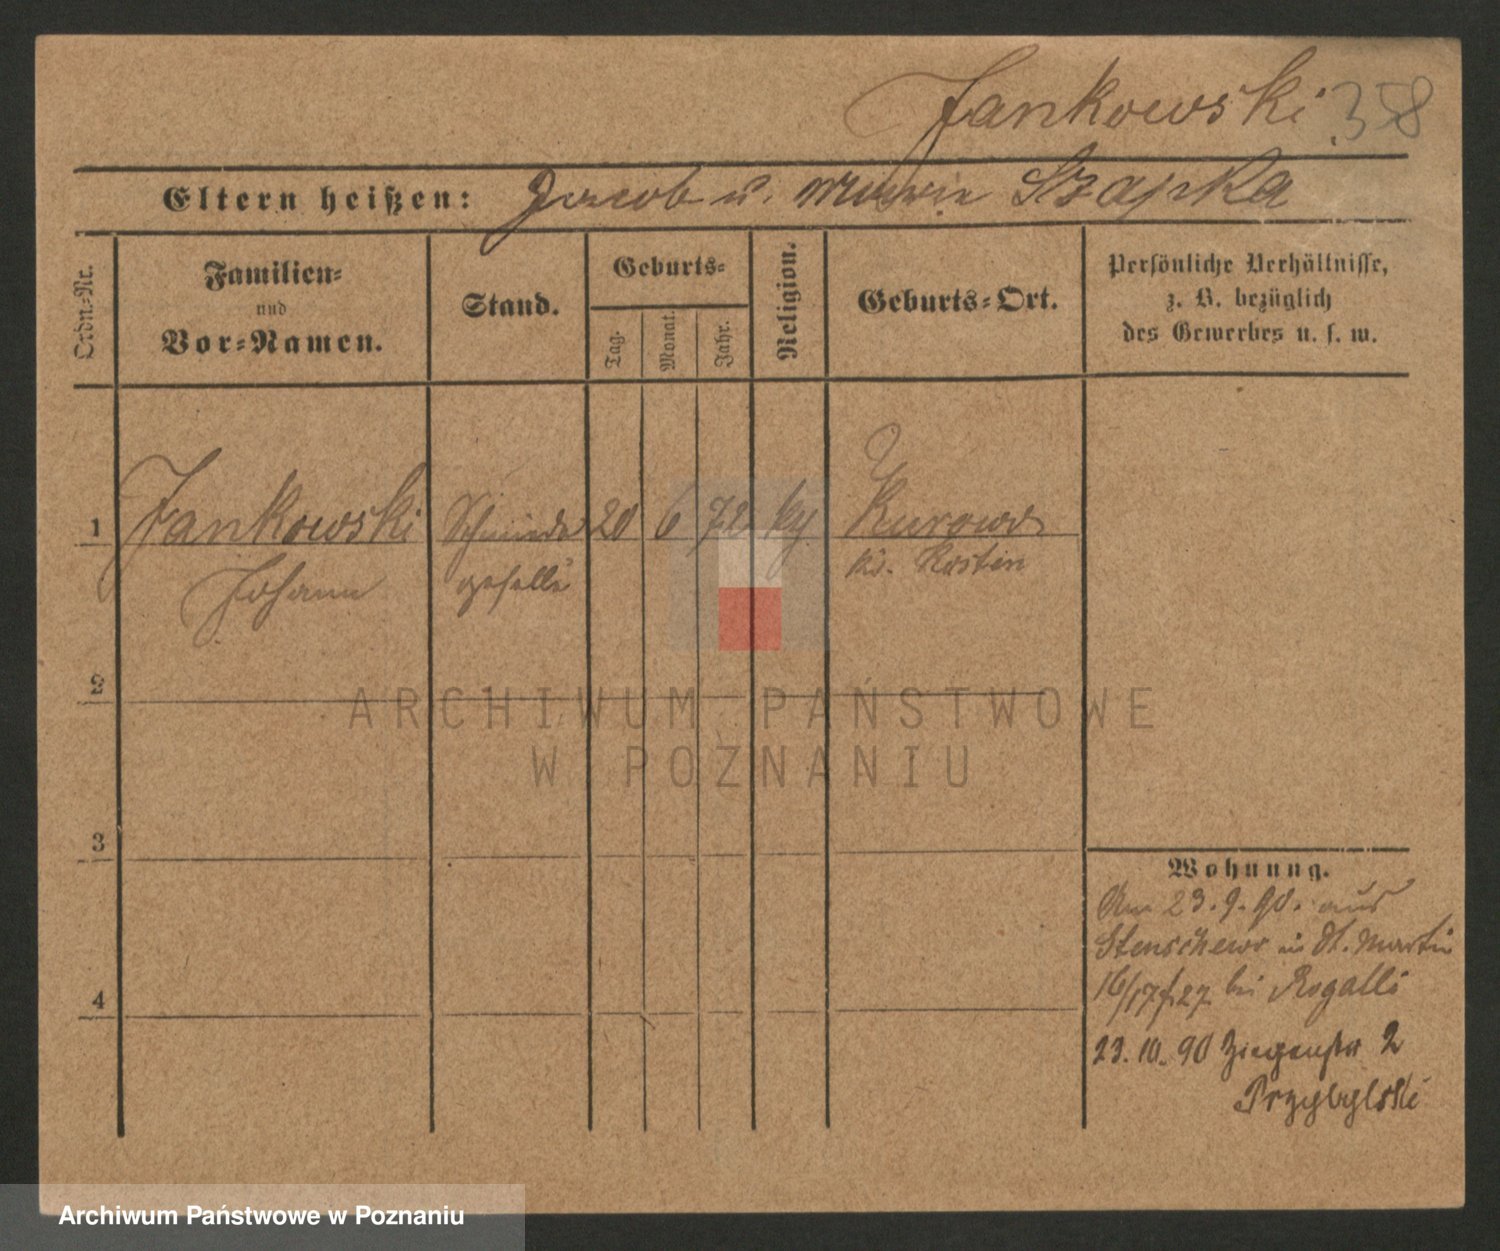 Jankowski 358
Eltern heißen: Jacob u. Marie Szapka
Ordn.-Nr.
Familien-
und
Vor-Namen.
Stand.
Geburts-
Tag.
Monat.
Jahr.
Religion.
Geburts-Ort.
Persönliche Verhältnisse,
z. B. bezüglich
des Gewerbes u. s. w.
1 Jankowski Schmiede 20 6 72 Kurowo
Johann geselle Kr. Kosten
2
3
4
Wohnung.
Am 23. 9. 90. aus
Stenschewo in St. Martin
16/17 bei Rogalli
23. 10. 90 Ziegenstr 2
Przybylski
ARCHIWUM PAŃSTWOWE
W POZNANIU
Archiwum Państwowe w Poznaniu